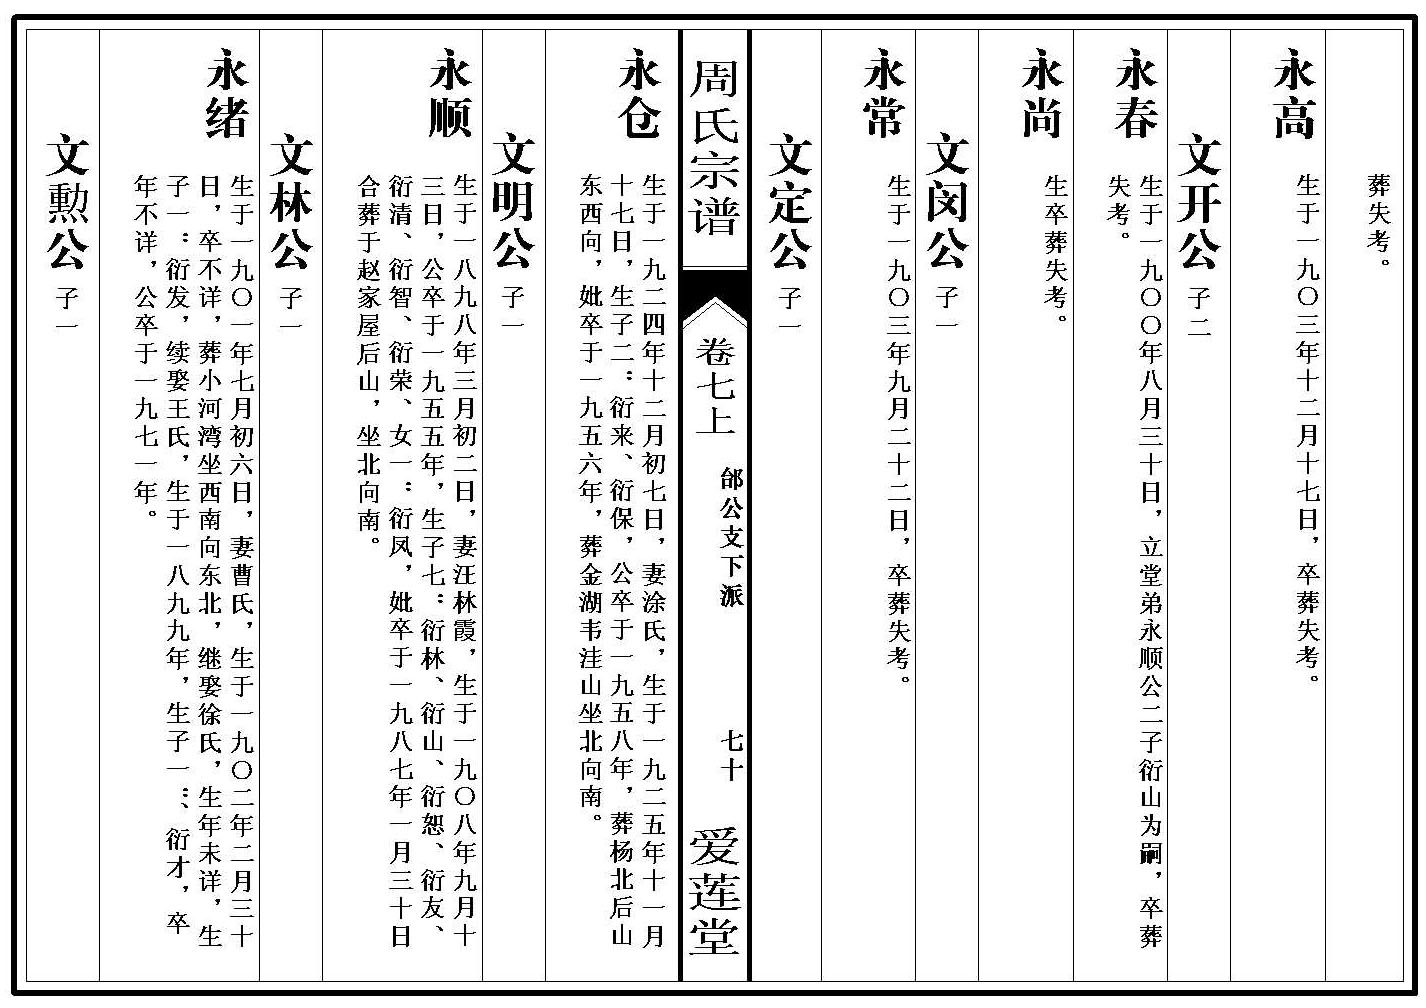 葬失考。
永高
生于一九〇三年十二月十七日，卒葬失考。
文开公 子二
永春
生于一九〇〇年八月三十日，立堂弟永顺公二子衍山为嗣，卒葬
失考。
永尚
生卒葬失考。
文闵公 子一
永常
生于一九〇三年九月二十二日，卒葬失考。
文定公 子一
周氏宗谱
卷七上
邰公支下派
七十
爱莲堂
永仓
生于一九二四年十二月初七日，妻涂氏，生于一九二五年十一月
十七日，生子二：衍来、衍保，公卒于一九五八年，葬杨北后山
东西向，妣卒于一九五六年，葬金湖韦洼山坐北向南。
文明公 子一
永顺
生于一八九八年三月初二日，妻汪林霞，生于一九〇八年九月十
三日，公卒于一九五五年，生子七：衍林、衍山、衍恕、衍友、
衍清、衍智、衍荣、女一：衍凤，妣卒于一九八七年一月三十日
合葬于赵家屋后山，坐北向南。
文林公 子一
永绪
生于一九〇一年七月初六日，妻曹氏，生于一九〇二年二月三十
日，卒不详，葬小河湾坐西南向东北，继娶徐氏，生年未详，生
子一：衍发，续娶王氏，生于一八九九年，生子一：、衍才，卒
年不详，公卒于一九七一年。
文勲公 子一